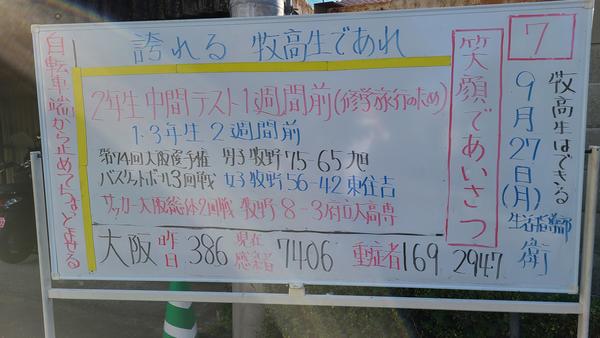 7
牧高生はできる
9月27日(月)
生活指導部
衛
笑顔であいさつ
誇れる 牧高生であれ
2年生 中間テスト1週間前(修学旅行のため)
1・3年生 2週間前
第74回大阪選手権 男子 牧野 75-65 旭
バスケットボール3回戦 女子 牧野 56-42 東住吉
サッカー大阪総体2回戦 牧野 8-3 府立大高専
大阪 昨日 386 現在感染者 7406 重症者 169 2947
自転車端から止めて